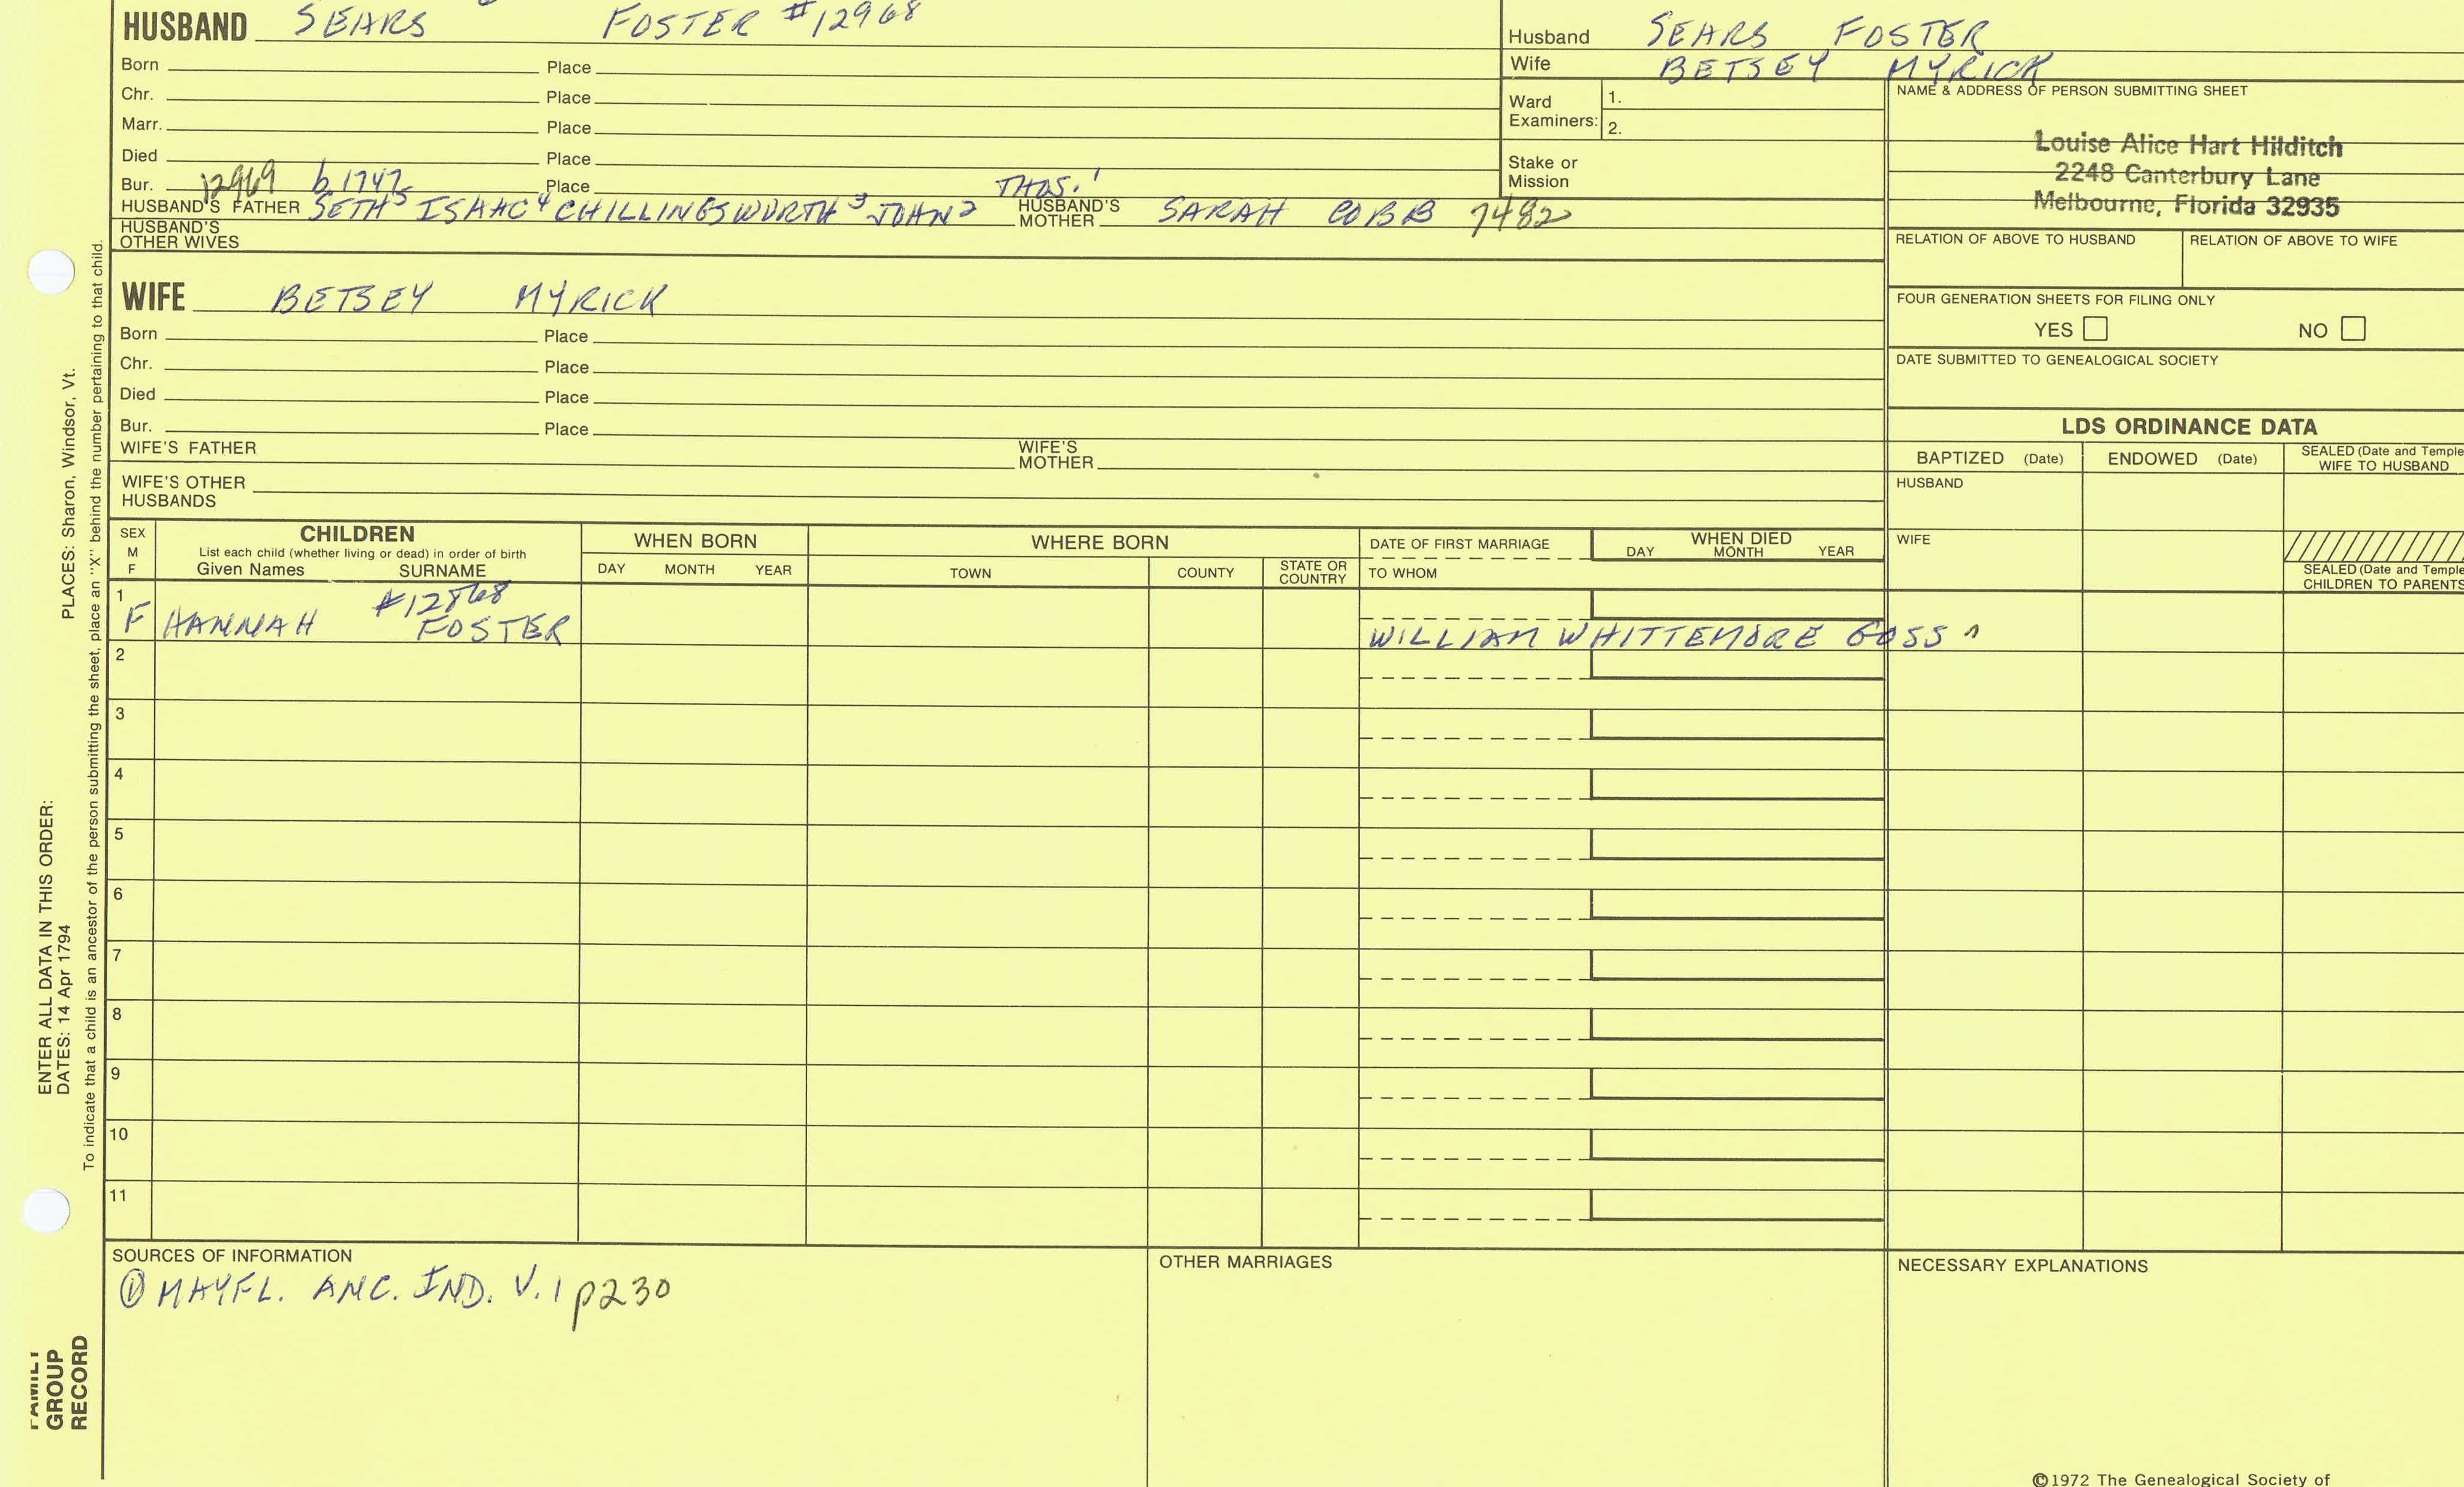 HUSBAND SEARS FOSTER #12968
Born Place
Chr. Place
Marr. Place
Died Place
Bur. 12969 b 1747 Place THOS.¹
HUSBAND'S FATHER SETH⁵ ISAAC⁴ CHILLINGSWORTH³ JOHN² HUSBAND'S MOTHER SARAH COBB 7482
HUSBAND'S OTHER WIVES
WIFE BETSEY MYRICK
Born Place
Chr. Place
Died Place
Bur. Place
WIFE'S FATHER WIFE'S MOTHER
WIFE'S OTHER HUSBANDS
Husband SEARS FOSTER
Wife BETSEY MYRICK
Ward Examiners: 1.
2.
Stake or Mission
NAME & ADDRESS OF PERSON SUBMITTING SHEET
Louise Alice Hart Hilditch
2248 Canterbury Lane
Melbourne, Florida 32935
RELATION OF ABOVE TO HUSBAND RELATION OF ABOVE TO WIFE
FOUR GENERATION SHEETS FOR FILING ONLY
YES NO
DATE SUBMITTED TO GENEALOGICAL SOCIETY
LDS ORDINANCE DATA
BAPTIZED (Date) ENDOWED (Date) SEALED (Date and Temple
WIFE TO HUSBAND
HUSBAND
WIFE
SEALED (Date and Temple
CHILDREN TO PARENTS
SEX
M
F
CHILDREN
List each child (whether living or dead) in order of birth
Given Names SURNAME
WHEN BORN
DAY MONTH YEAR
WHERE BORN
TOWN COUNTY STATE OR COUNTRY
DATE OF FIRST MARRIAGE
TO WHOM
WHEN DIED
DAY MONTH YEAR
1 #12868
F HANNAH FOSTER WILLIAM WHITTEMORE GOSS
2
3
4
5
6
7
8
9
10
11
SOURCES OF INFORMATION
① MAYFL. ANC. IND. V. 1 p230
OTHER MARRIAGES
NECESSARY EXPLANATIONS
©1972 The Genealogical Society of
PLACES: Sharon, Windsor, Vt.
ENTER ALL DATA IN THIS ORDER:
DATES: 14 Apr 1794
To indicate that a child is an ancestor of the person submitting the sheet, place an "X" behind the number pertaining to that child.
FAMILY
GROUP
RECORD